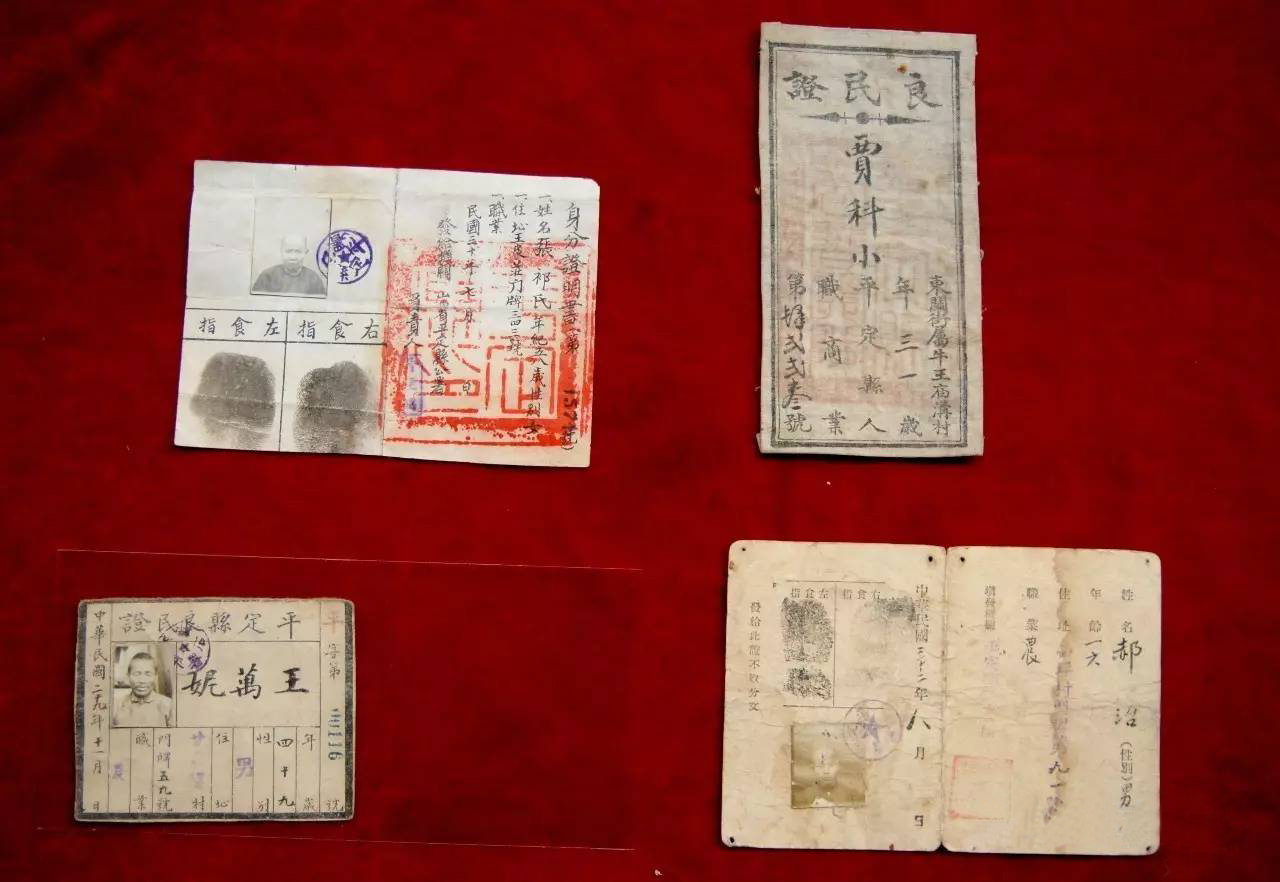 身分證明書(第 157 號)
一、姓名 張祁民 年紀五八歲 性別 女
一、住址 王 莊 門牌三四三號
一、職業
民國三十年 七月 日
發給機關 山西省平定縣公署
負責人
左食指
右食指
良民證
東關街屬牛王庙溝村
年三一歲
賈科小 平定縣人
職商業
第肆弍弍叁號
平字第 號
平定縣良民證
王萬妮
年四十九歲
性別 男
住址 村
門牌五九號
職業 農
中華民國二九年十一月 日
姓名 郝沼 (性別)男
年齡 一六
住址 九一號
職業 農
填發機關
中華民國三十二年八月 日
右食指
左食指
發給此證不收分文